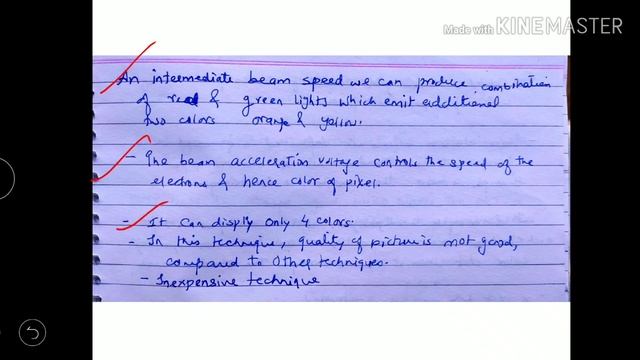 Made with KINEMASTER
An intermediate beam speed we can produce combination
of red & green lights which emit additional
two colors orange & yellow.
- The beam acceleration voltage controls the speed of the
electrons & hence color of pixel.
- It can disply only 4 colors.
- In this technique, quality of picture is not good,
compared to other techniques.
- Inexpensive technique